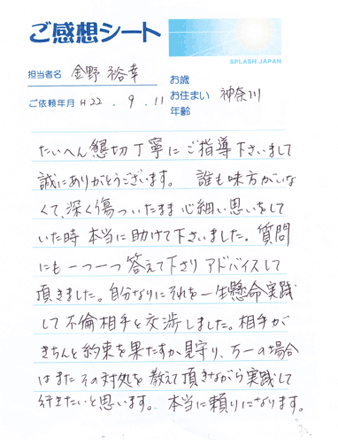 ご感想シート
SPLASH JAPAN
担当者名 金野 裕幸
お歳
ご依頼年月 H22.9.11
お住まい 神奈川
年齢
たいへん懇切丁寧にご指導下さいまして
誠にありがとうございます。 誰も味方がいな
くて、深く傷ついたまま心細い思いをして
いた時本当に助けて下さいました。質問
にも一つ一つ答えて下さりアドバイスして
頂きました。自分なりにそれを一生懸命実践
して不倫相手と交渉しました。相手が
きちんと約束を果たすか見守り、万一の場合
はまたその対処を教えて頂きながら実践して
行きたいと思います。 本当に頼りになります。